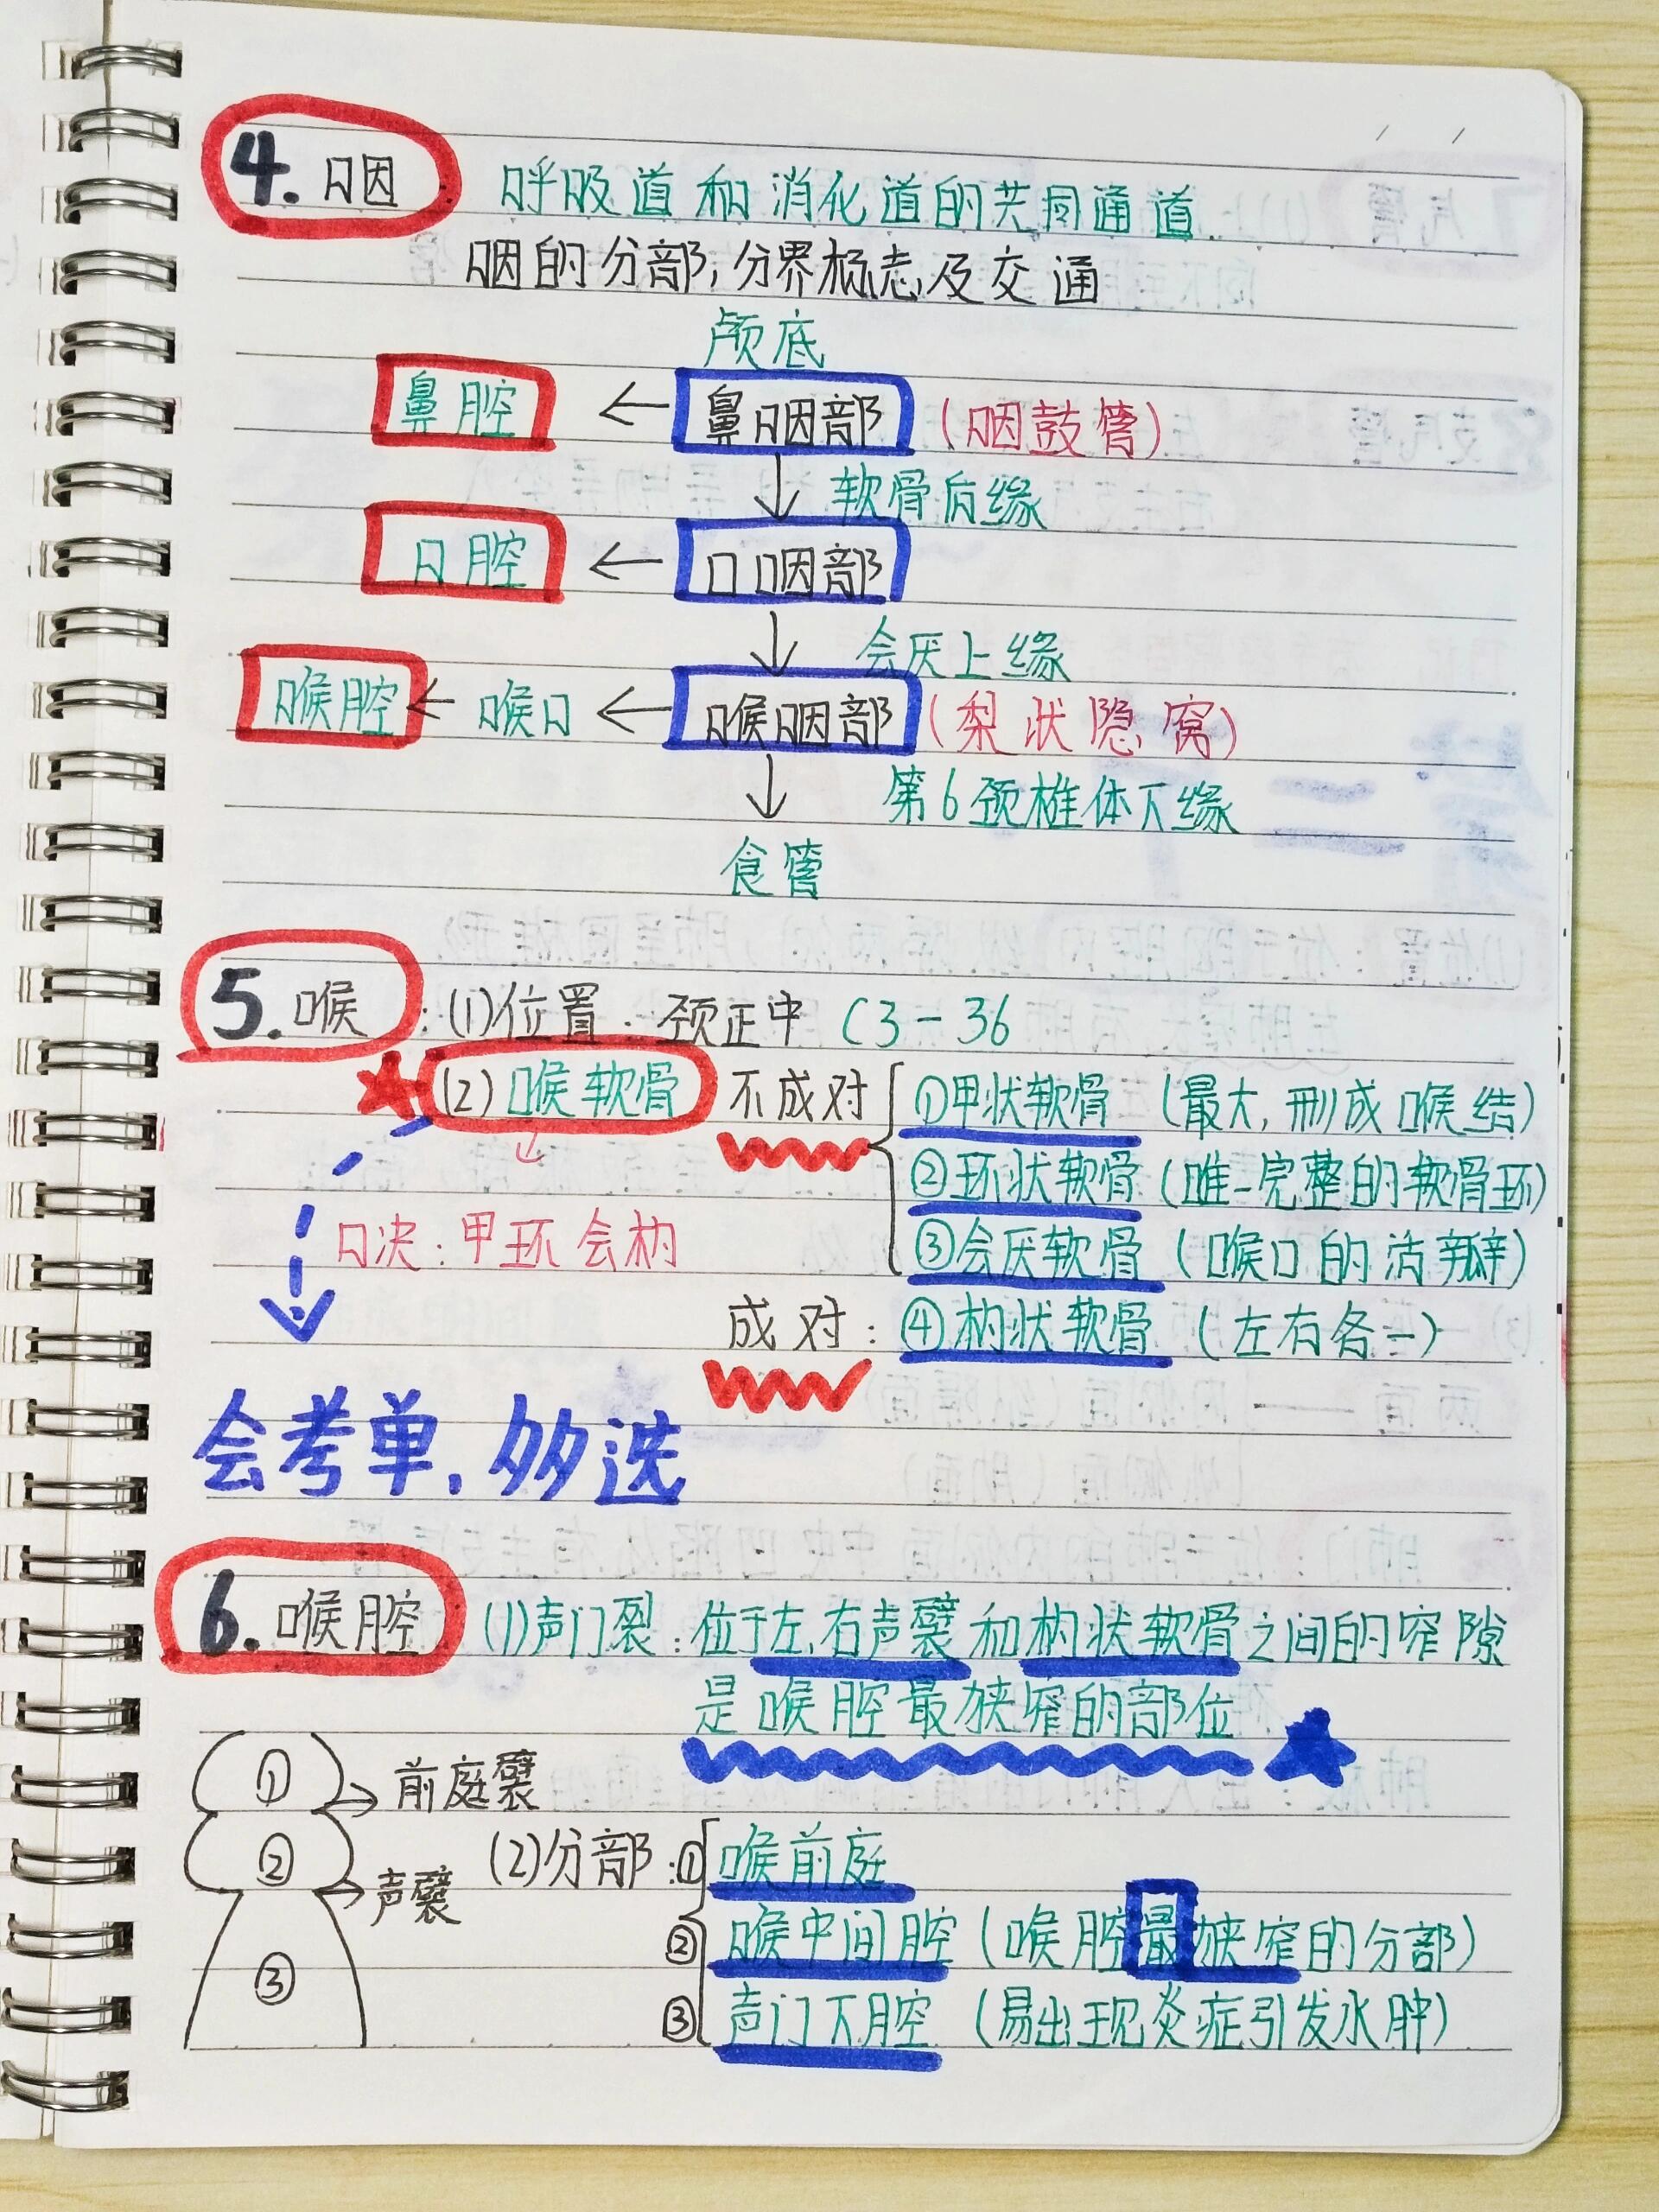 4. 咽 呼吸道和消化道的共同通道
咽的分部,分界标志及交通
颅底
鼻腔 ← 鼻咽部 (咽鼓管)
↓ 软骨后缘
口腔 ← 口咽部
↓ 会厌上缘
喉腔 ← 喉口 ← 喉咽部 (梨状隐窝)
↓ 第6颈椎体下缘
食管
5. 喉 : (1)位置. 颈正中 C3-36
★ (2)喉软骨 不成对 ①甲状软骨 (最大,形成喉结)
②环状软骨 (唯一完整的软骨环)
口决:甲环会杓 ③会厌软骨 (喉口的活瓣)
成对: ④杓状软骨 (左右各一)
会考单,多选
6. 喉腔 (1)声门裂:位于左、右声襞和杓状软骨之间的窄隙
是喉腔最狭窄的部位 ★
① → 前庭襞
(2)分部: ① 喉前庭
② → 声襞
② 喉中间腔 (喉腔最狭窄的分部)
③
③ 声门下腔 (易出现炎症引发水肿)